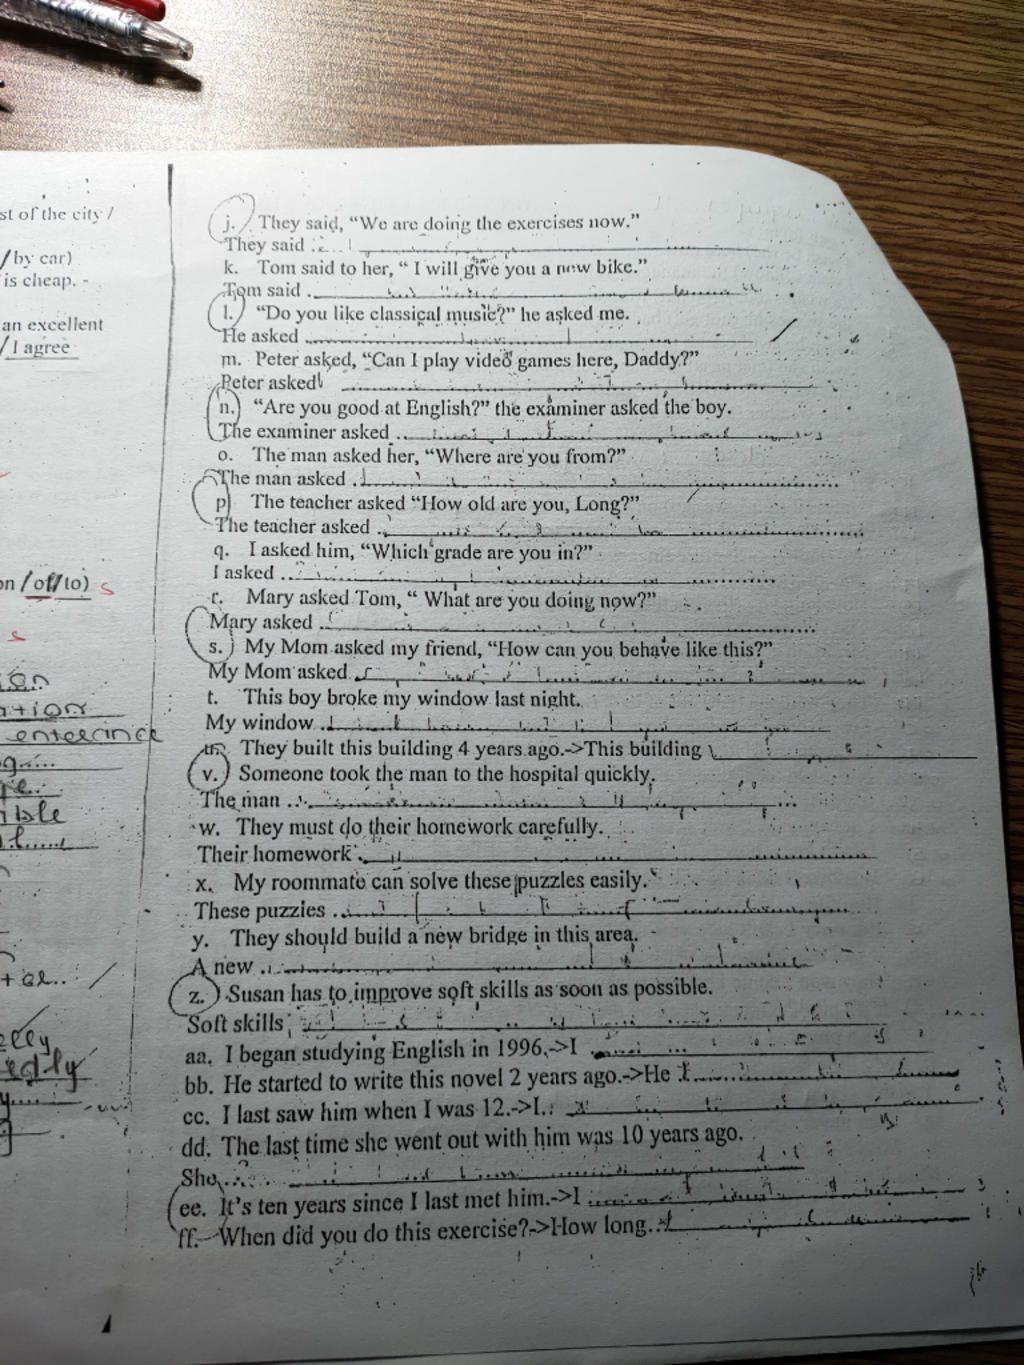 st of the city /
/ by car)
is cheap. -
an excellent
/ I agree
on / of / to) s
s
ion
ation
enteerince
g.....
ible
l.....
j. They said, “We are doing the exercises now.”
They said
k. Tom said to her, “ I will give you a new bike.”
Tom said
l. “Do you like classical music?” he asked me.
He asked
m. Peter asked, “Can I play video games here, Daddy?”
Peter asked
n. “Are you good at English?” the examiner asked the boy.
The examiner asked
o. The man asked her, “Where are you from?”
The man asked
p The teacher asked “How old are you, Long?”
The teacher asked
q. I asked him, “Which grade are you in?”
I asked
r. Mary asked Tom, “ What are you doing now?”
Mary asked
s. My Mom asked my friend, “How can you behave like this?”
My Mom asked
t. This boy broke my window last night.
My window
They built this building 4 years ago.->This building
v. Someone took the man to the hospital quickly.
The man
w. They must do their homework carefully.
Their homework
x. My roommate can solve these puzzles easily.
These puzzies
y. They should build a new bridge in this area.
A new
z. Susan has to improve soft skills as soon as possible.
Soft skills
aa. I began studying English in 1996.->I
bb. He started to write this novel 2 years ago.->He
cc. I last saw him when I was 12.->I
dd. The last time she went out with him was 10 years ago.
She
ee. It's ten years since I last met him.->I
ff. When did you do this exercise?->How long